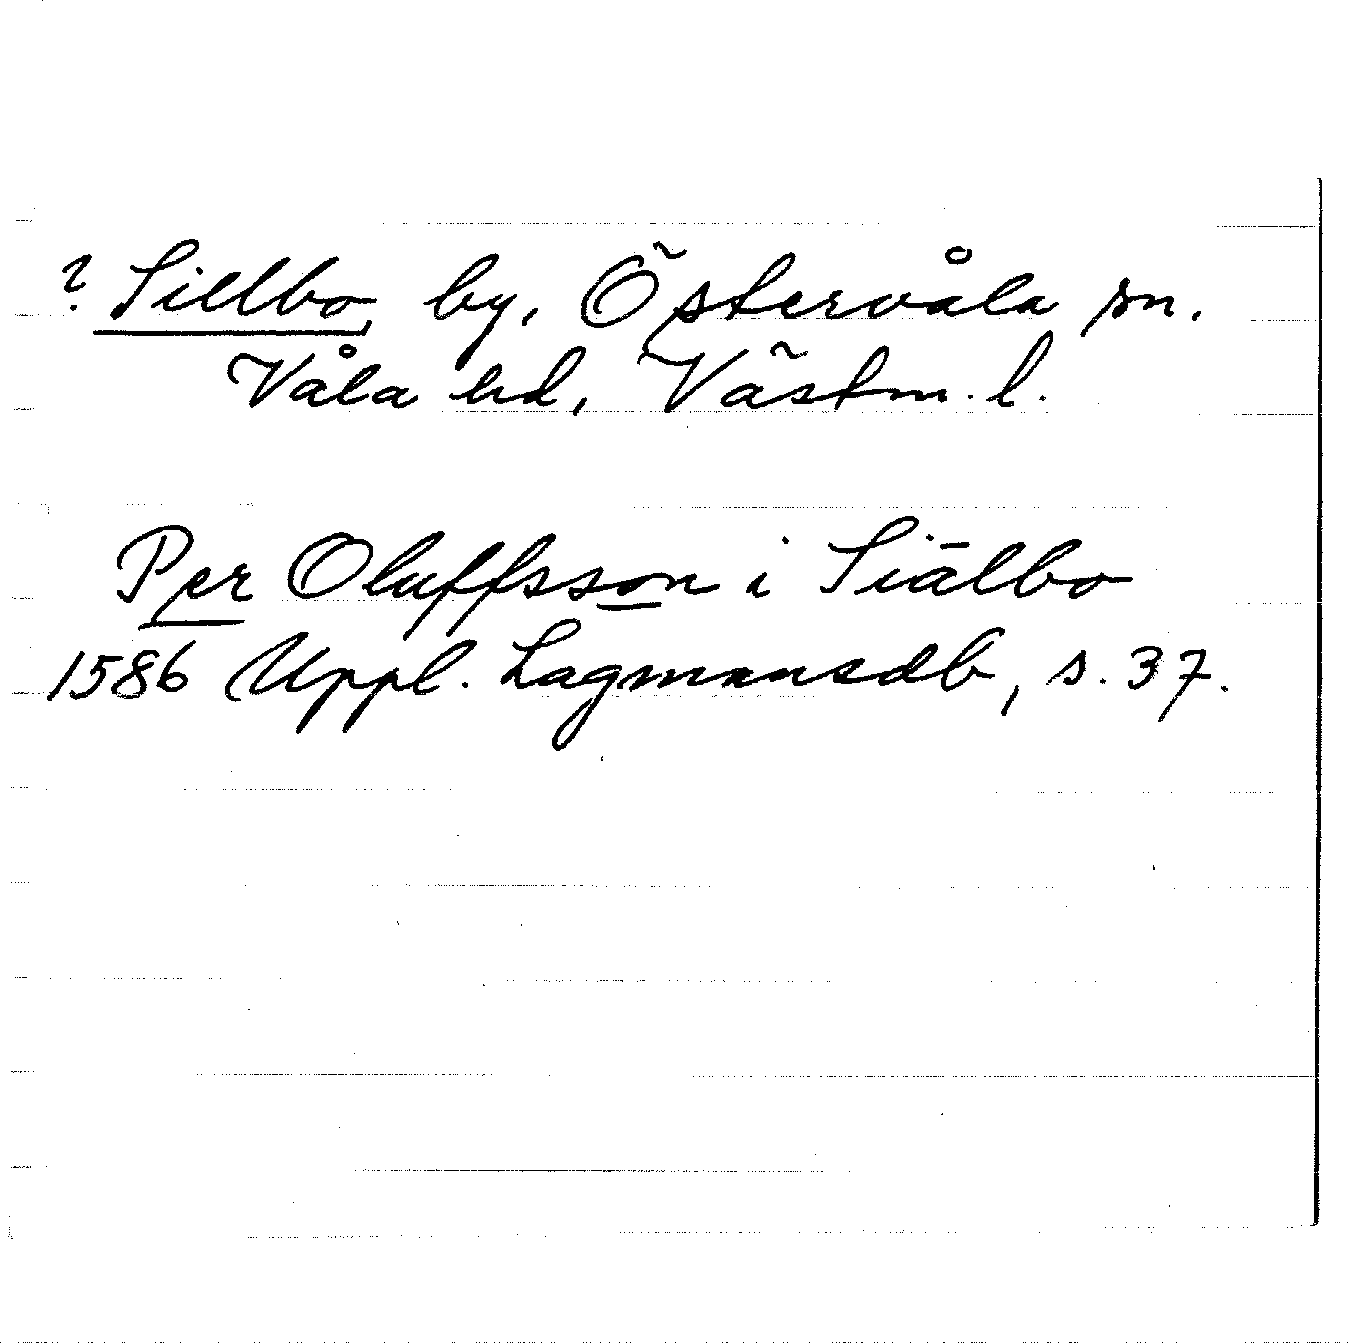 ? Sillbo, by, Östervåla sn.
Våla hd, Västm. l.
Per Oluffsson i Siälbo
1586 Uppl. Lagmansdb, s. 37.